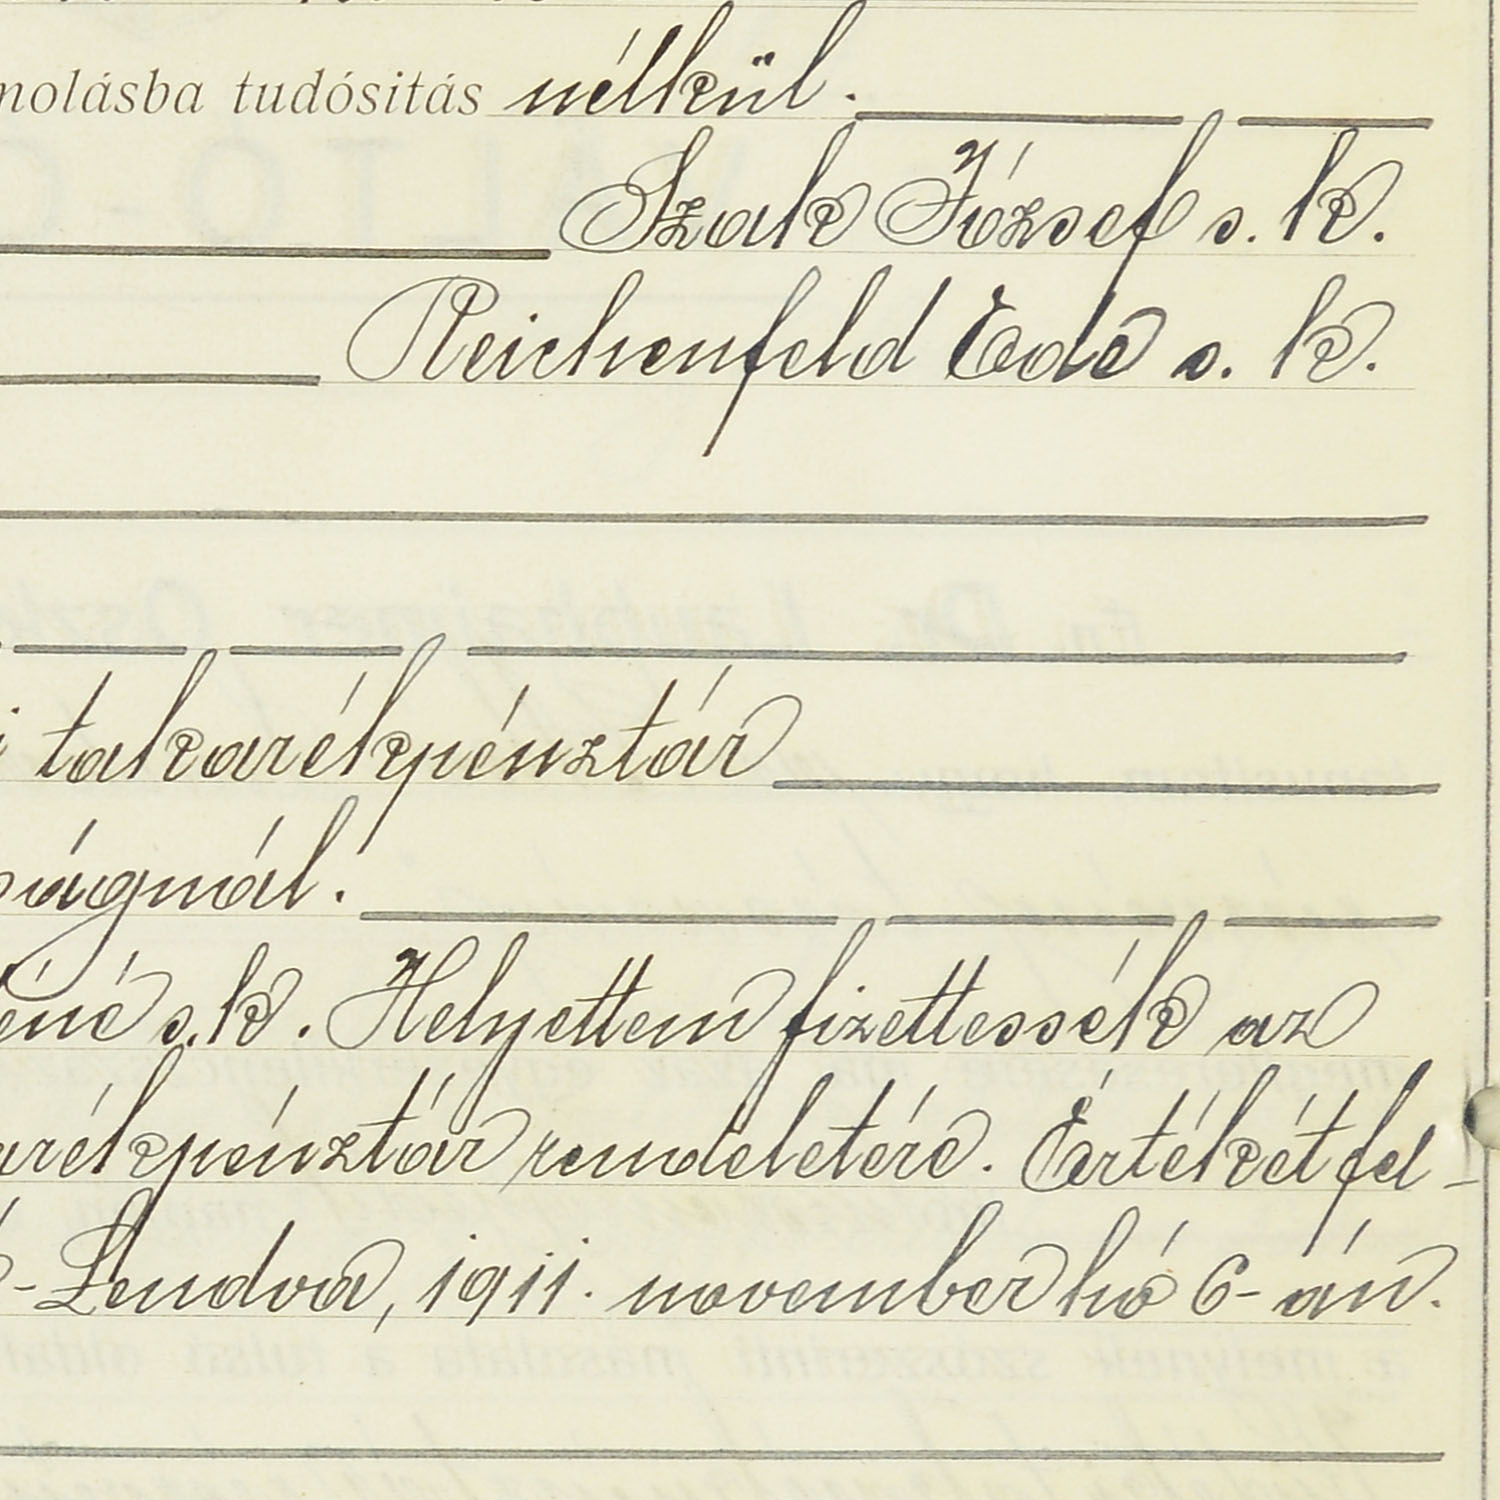 molásba tudósitás nélkül.
Szak József s. k.
Reichenfeld Ede s. k.
i takarékpénztár
ságnál.
éné s. k. Helyettem fizettessék az
arékpénztár rendeletére. Értékét fel-
-Lendva, 1911. november hó 6-án.